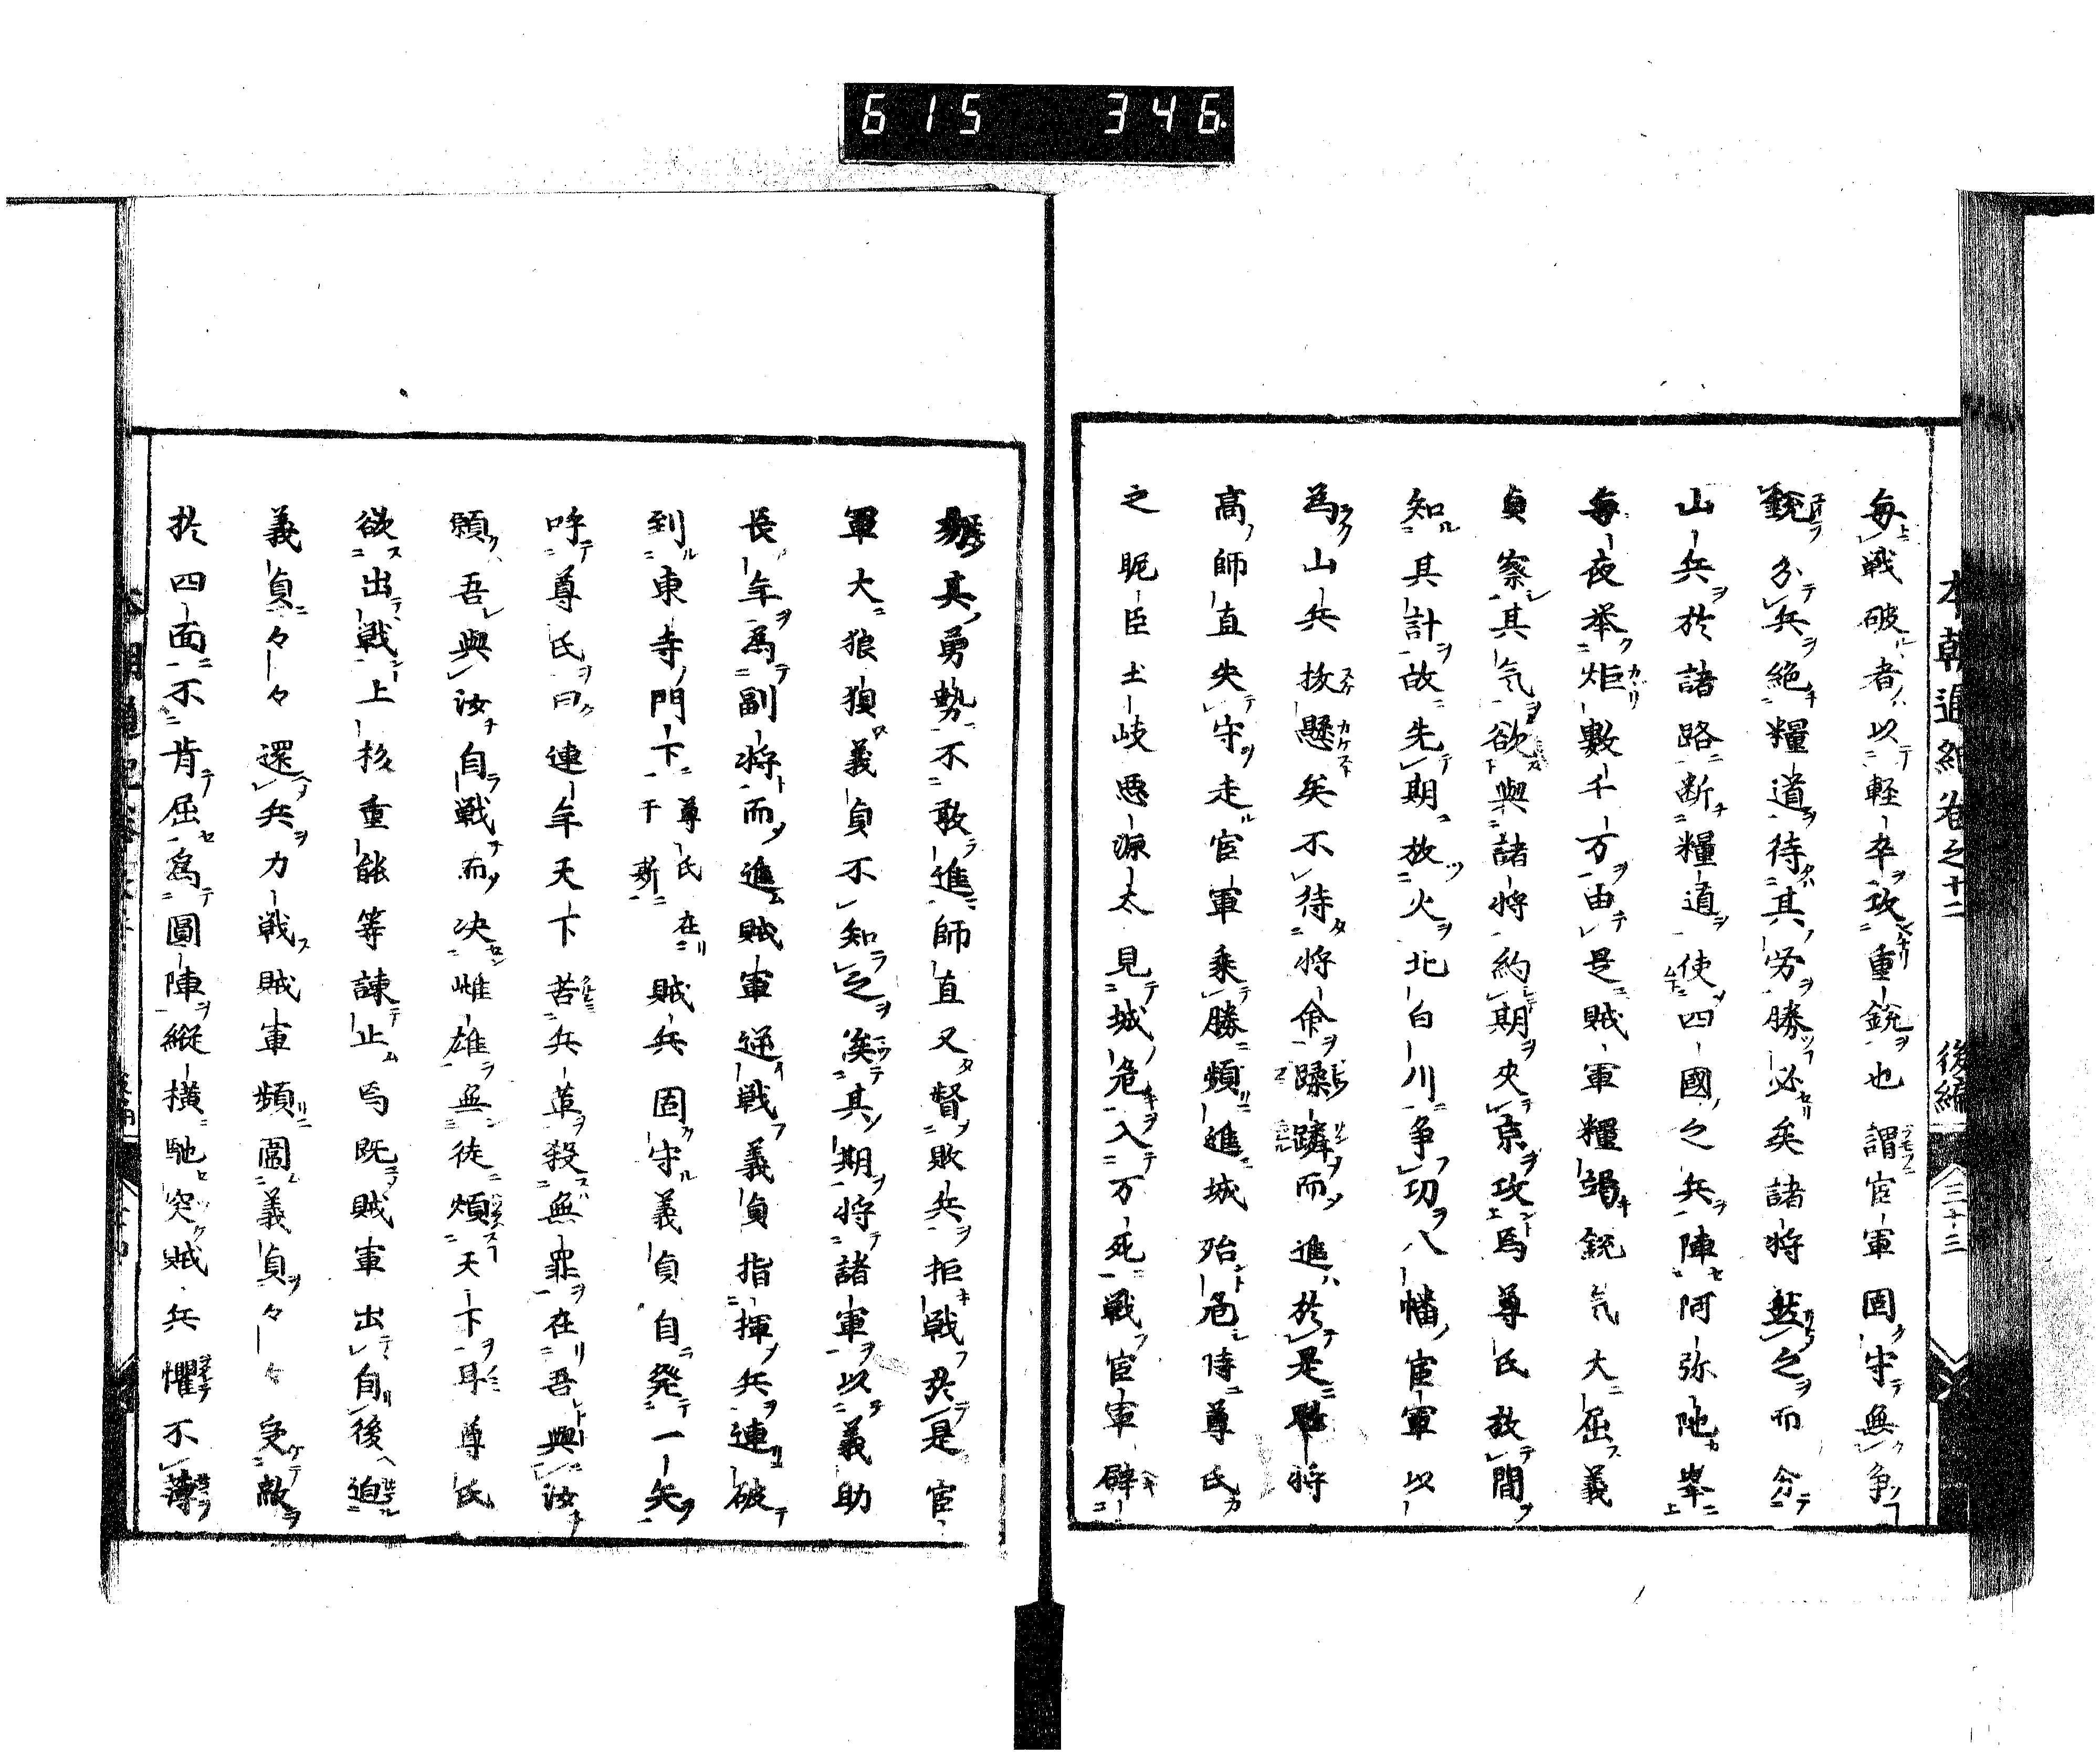 615 346
本朝通紀巻之十二 後編 三十三
毎戦破者以軽卒攻重鋭也謂官軍固守無争
鋭分兵絶糧道待其労勝必矣諸将然之而分
山兵於諸路断糧道使四國之兵陣阿弥陁峯
毎夜挙炬數千万由是賊軍糧竭鋭気大屈義
貞察其気欲與諸将約期夾京攻焉尊氏故間
知其計故先期放火北白川争功八幡官軍以
為山兵抜懸矣不待将命蹂躪而進於是 将
高師直失守走官軍乗勝頻進城殆危時尊氏
之昵臣土岐悪源太見城危入万死戦官軍辟
易其勇勢不敢進師直又督敗兵拒戦於是官
軍大狼狽義貞不知之俟其期将諸軍以義助
長年為副将而進賊軍逆戦義貞指揮兵連破
到東寺門下尊氏在于斯賊兵固守義貞自発一矢
呼尊氏曰連年天下苦兵革殺無罪在吾與汝
願吾與汝自戦而決雌雄無徒煩天下耳尊氏
欲出戦上杉重能等諫止焉既賊軍出自後迫
義貞々々還兵力戦賊軍頻圍義貞々々受敵
於四面不肯屈為圓陣縦横馳突賊兵懼不薄